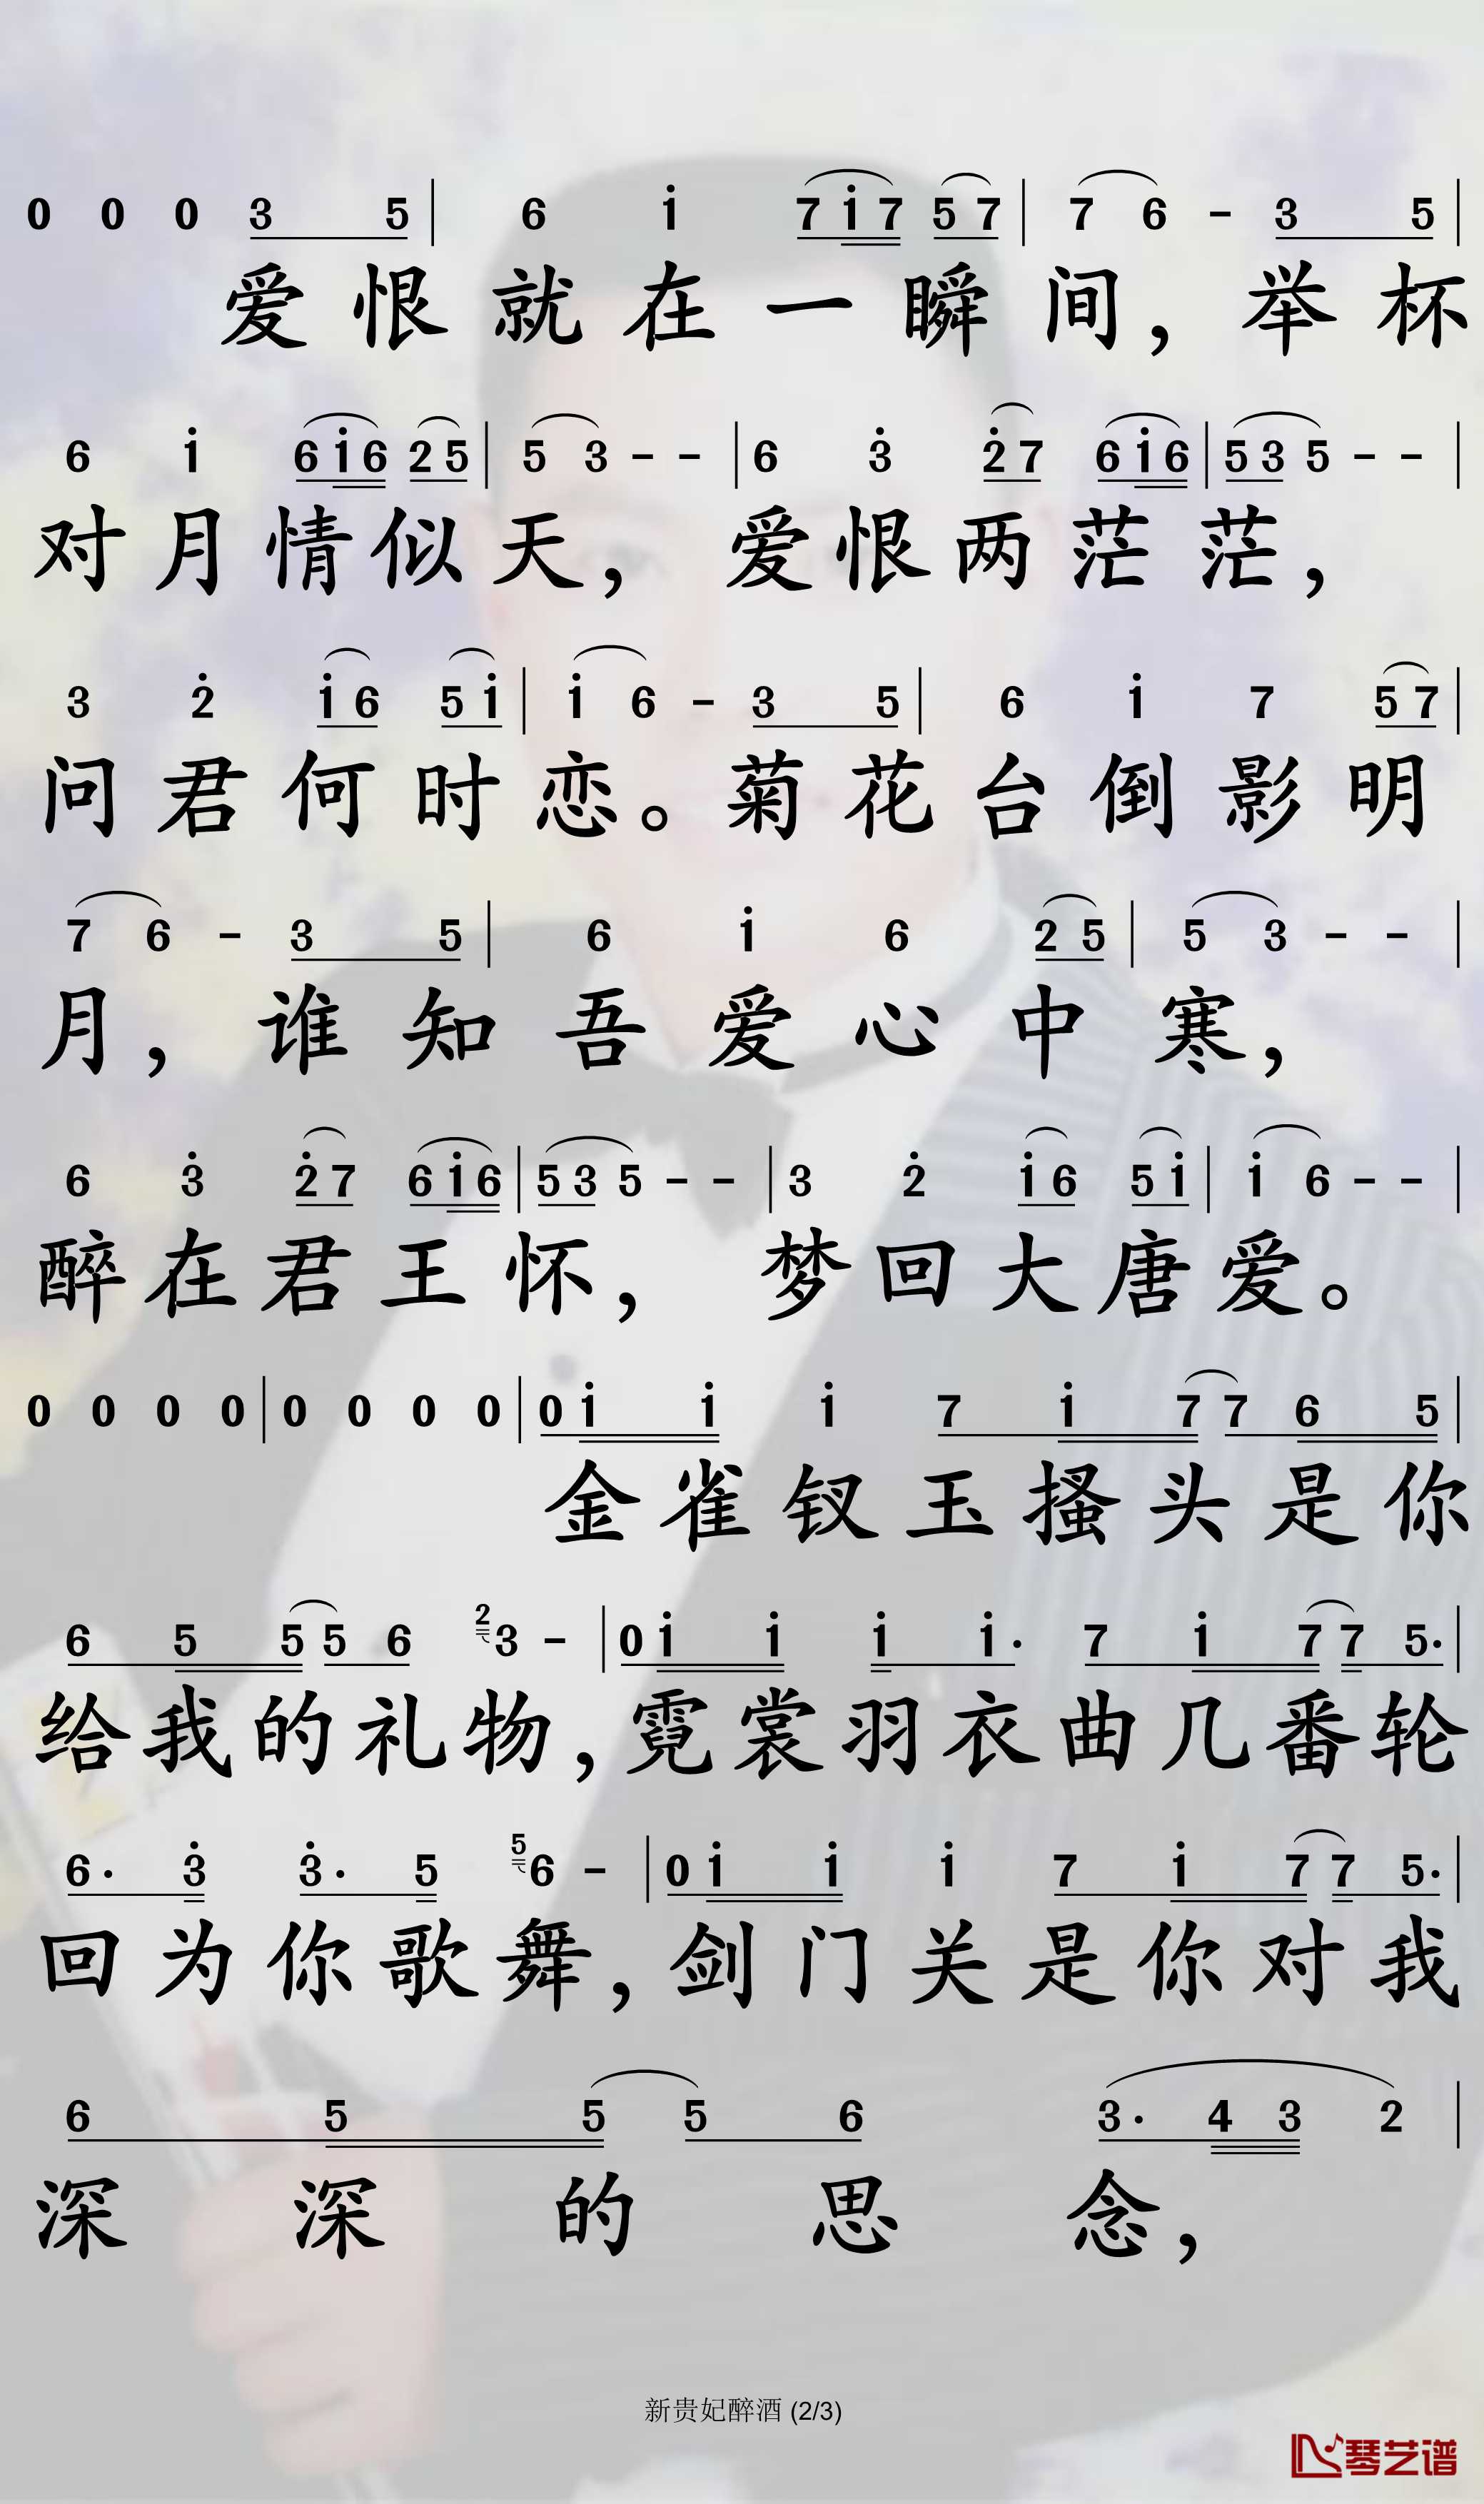 0 0 0 3 5 | 6 i 7 i 7 5 7 | 7 6 - 3 5 |
爱恨就在一瞬间，举杯
6 i 6 i 6 2 5 | 5 3 - - | 6 3̇ 2̇ 7 6 i 6 | 5 3 5 - - |
对月情似天，爱恨两茫茫，
3 2̇ i 6 5 i | i 6 - 3 5 | 6 i 7 5 7 |
问君何时恋。菊花台倒影明
7 6 - 3 5 | 6 i 6 2 5 | 5 3 - - |
月，谁知吾爱心中寒，
6 3̇ 2̇ 7 6 i 6 | 5 3 5 - - | 3 2̇ i 6 5 i | i 6 - - |
醉在君王怀，梦回大唐爱。
0 0 0 0 | 0 0 0 0 | 0 i i i 7 i 7 7 6 5 |
金雀钗玉搔头是你
6 5 5 5 6 2 3 - | 0 i i i i· 7 i 7 7 5· |
给我的礼物，霓裳羽衣曲几番轮
6· 3̇ 3̇· 5 5 6 - | 0 i i i 7 i 7 7 5· |
回为你歌舞，剑门关是你对我
6 5 5 5 6 3· 4 3 2 |
深深的思念，
新贵妃醉酒 (2/3)
琴艺谱